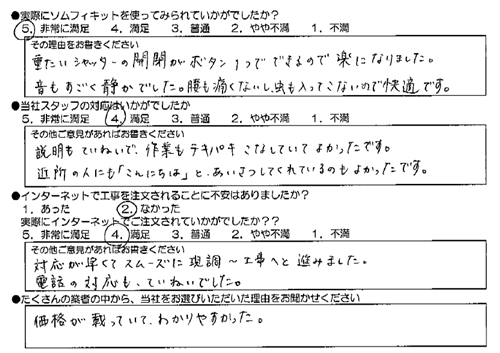 ●実際にソムフィキットを使ってみられていかがでしたか?
5. 非常に満足 4. 満足 3. 普通 2. やや不満 1. 不満
その理由をお書きください
重たいシャッターの開閉がボタン1つでできるので楽になりました。
音もすごく静かでした。腰も痛くないし、虫も入ってこないので快適です。
●当社スタッフの対応はいかがでしたか
5. 非常に満足 4. 満足 3. 普通 2. やや不満 1. 不満
その他ご意見があればお書きください
説明もていねいで、作業もテキパキこなしていてよかったです。
近所の人にも「こんにちは」と、あいさつしてくれているのもよかったです。
●インターネットで工事を注文されることに不安はありましたか?
1. あった 2. なかった
実際にインターネットでご注文されていかがでしたか??
5. 非常に満足 4. 満足 3. 普通 2. やや不満 1. 不満
その他ご意見があればお書きください
対応が早くてスムーズに現調〜工事へと進みました。
電話の対応も、ていねいでした。
●たくさんの業者の中から、当社をお選びいただいた理由をお聞かせください
価格が載っていて、わかりやすかった。